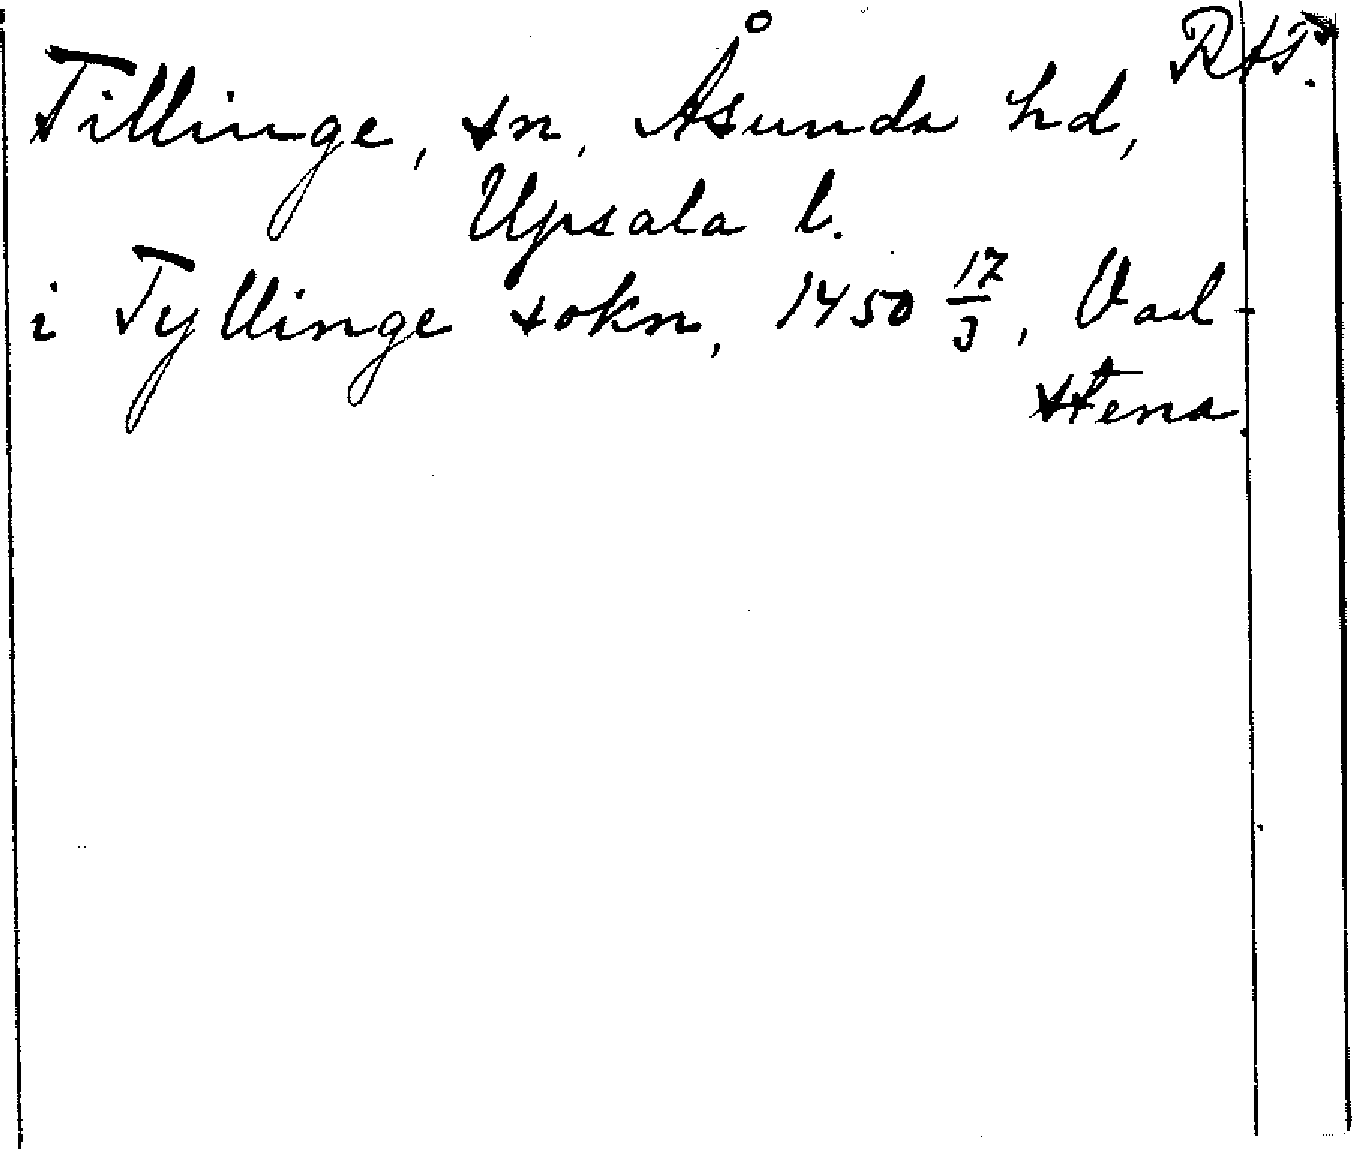 RAP.
Tillinge, sn, Åsunda hd,
Upsala l.
i Tyllinge sokn, 1450 17/3, Vad-
stena.